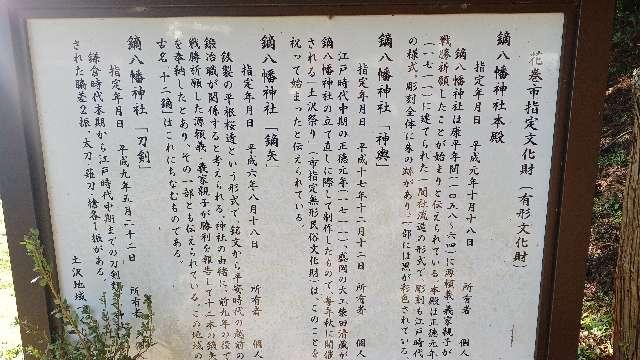 花巻市指定文化財(有形文化財)
鏑八幡神社本殿
指定年月日 平成元年十月十八日 所有者 個人
鏑八幡神社は康平年間(一〇五八~六四)に源頼義・義家親子が
戦勝祈願したことが始まりと伝えられている。本殿は正徳元年
(一七一一)に建てられた一間社流造の形式で、彫刻も江戸時代
の様式。彫刻全体に朱の跡があり、一部には黒が彩色されている。
鏑八幡神社「神輿」
指定年月日 平成十七年十二月十二日 所有者 個人
江戸時代中期の正徳元年(一七一一)、盛岡の大工柴田清蔵が
鏑八幡神社の立て直しに際して制作したもので、毎年秋に開催
される「土沢祭り」(市指定無形民俗文化財)は、このことを
祝って始まったと伝えられている。
鏑八幡神社「鏑矢」
指定年月日 平成六年八月十八日 所有者 個人
鉄製の平根桜透という形式で、銘文から平安時代の備前の
鍛冶職が関係すると考えられる。神社の由緒に、前九年の役で
戦勝祈願した源頼義、義家親子が勝利を報告して十二本の鏑矢
を奉納したとあり、その一部とも伝えられている。この地域の
古名「十二鏑」はこれにちなむものである。
鏑八幡神社「刀剣」
指定年月日 平成九年五月二十二日 所有者
鎌倉時代末期から江戸時代中期までの刀剣類で神社に
された脇差2振、太刀、薙刀、槍各1振がある。
土沢地域